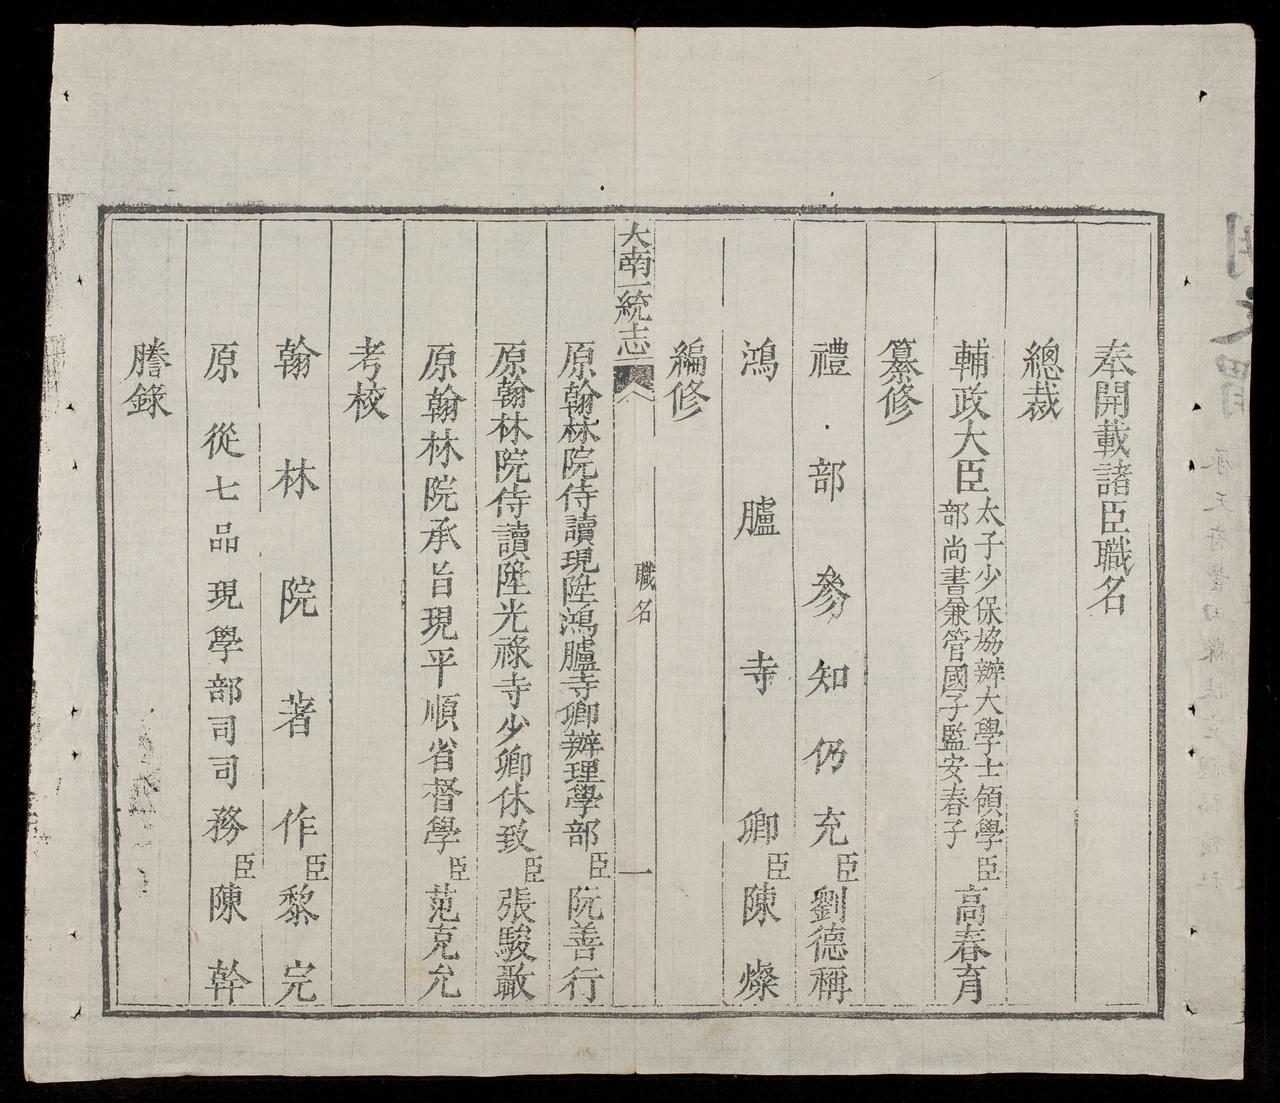 奉開載諸臣職名
總裁
輔政大臣太子少保協辦大學士領學部尚書兼管國子監安春子臣高春育
纂修
禮部參知仍充臣劉德稱
鴻臚寺卿臣陳燦
編修
大南一統志 職名 一
原翰林院侍讀現陞鴻臚寺卿辦理學部臣阮善行
原翰林院侍讀陞光祿寺少卿休致臣張駿敢
原翰林院承旨現平順省督學臣范克允
考校
翰林院著作臣黎完
原從七品現學部司司務臣陳幹
謄錄